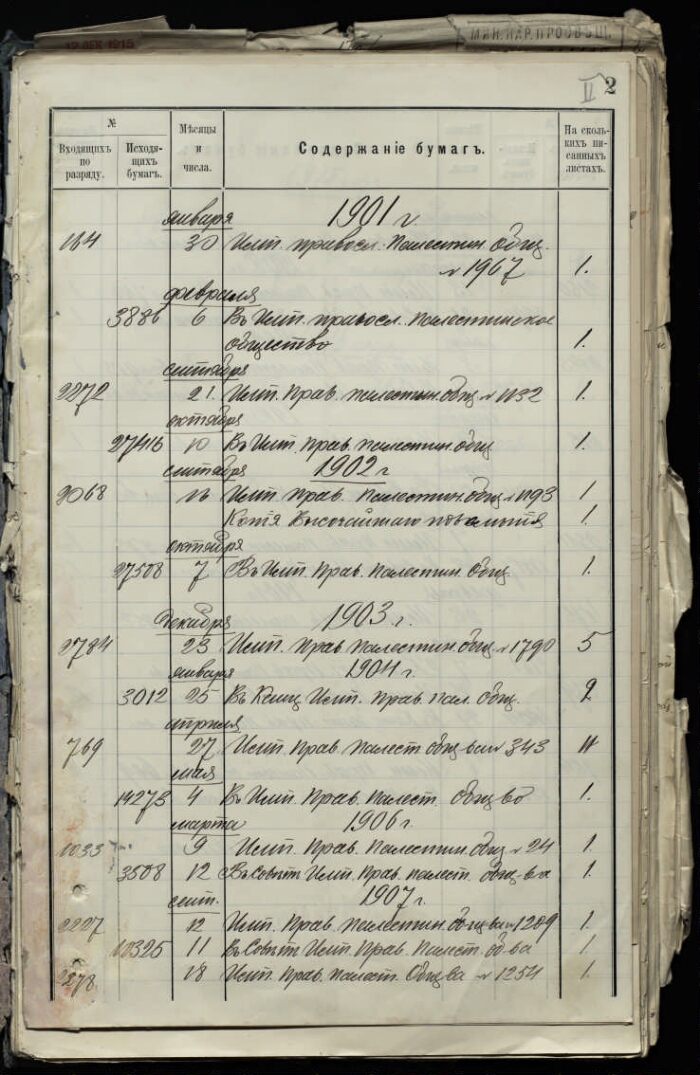 12 ДЕК 1915
МИН. НАР. ПРОСВѢЩ.
II 2
№ Мѣсяцы и числа. Содержаніе бумагъ. На сколькихъ писанныхъ листахъ.
Входящихъ по разряду. Исходящихъ бумагъ.
января 1901 г.
164 30 Имп. правосл. Палестин. Общ.
№ 1967 1.
февраля
3886 6 Въ Имп. правосл. Палестинское
общество 1.
сентября
2272 21. Имп. Прав. Палестин. общ. № 1132 1.
октября
27416 10 Въ Имп. Прав. Палестин. общ 1.
сентября 1902 г
2068 Имп. Прав. Палестин. общ. № 1193 1
Копія Высочайшаго повелѣнія 1.
октября
27508 7 Въ Имп. Прав. Палестин. Общ. 1.
Декабря 1903 г.
2784 23 Имп. Прав Палестин. общ. № 1790 5
января 1904 г.
3012 25 Въ Канц. Имп. Прав. Пал. Общ. 2
апреля
769 27 Имп. Прав. Палест. общ-ва № 343
мая
14273 4 Въ Имп. Прав. Палест. Общ-во 1.
марта 1906 г.
1033 9 Имп. Прав. Палестин. общ. № 24 1.
3508 12 Въ Совѣтъ Имп. Прав. Палест. общ-ва 1.
сент. 1907 г.
2227 12 Имп. Прав Палестин. общ-ва № 1209 1.
10325 11 Въ Совѣтъ Имп. Прав. Палест. об-ва 1.
2278 18 Имп. Прав. Палест. Общ-ва № 1254 1.